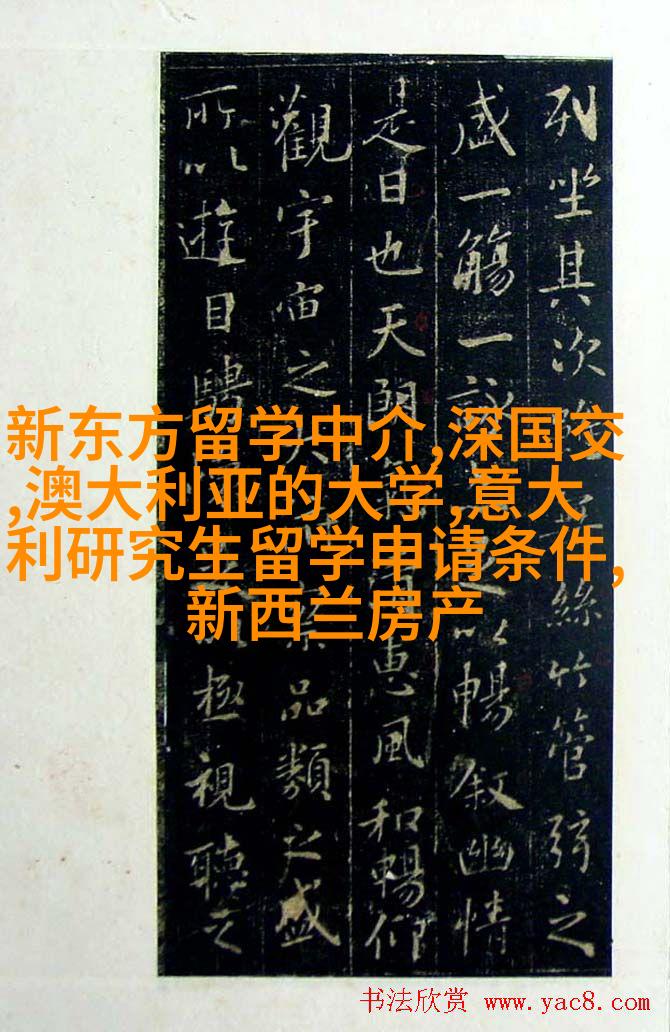 列坐其次絲竹管弦之
盛一觴一以暢叙幽情
是日也天朗惠風和暢仰
觀宇宙之品類之盛
所以遊目騁極視聽之
新东方留学中介,深国交
,澳大利亚的大学,意大
利研究生留学申请条件,
新西兰房产
书法欣赏 www.yac8.com